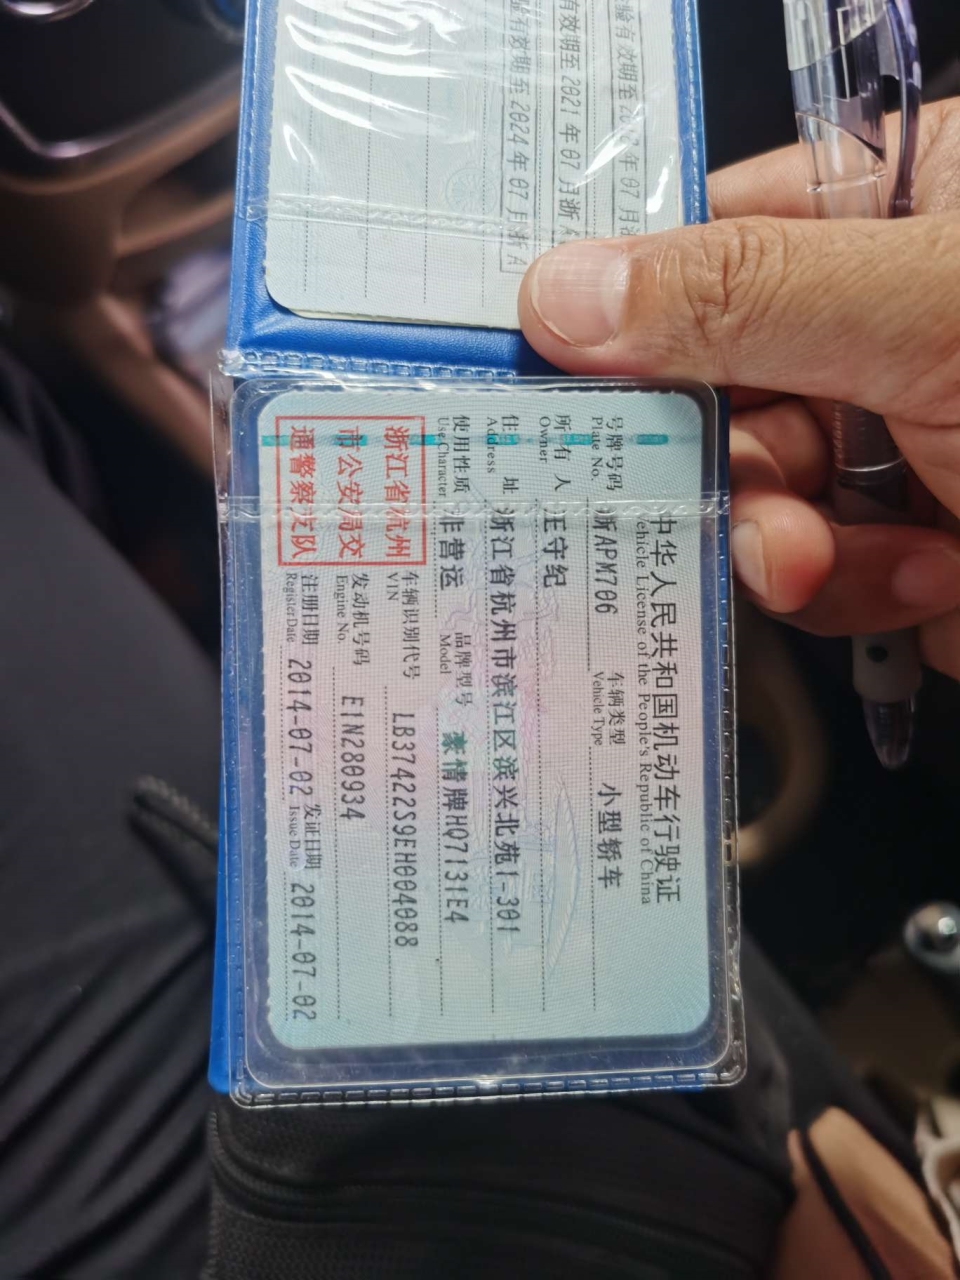 验有效期至2017年07月浙
有效期至2021年07月浙A
验有效期至2024年07月浙A
中华人民共和国机动车行驶证
Vehicle License of the People's Republic of China
号牌号码 浙APM706 车辆类型 小型轿车
Plate No. Vehicle Type
所有人 汪守纪
Owner
住址 浙江省杭州市滨江区滨兴北苑1-301
Address
使用性质 非营运 品牌型号 豪情牌HQ7131E4
Use Character Model
浙江省杭州
市公安局交
通警察支队
车辆识别代号 LB37422S9EH004088
VIN
发动机号码 E1N280934
Engine No.
注册日期 2014-07-02 发证日期 2014-07-02
Register Date Issue Date